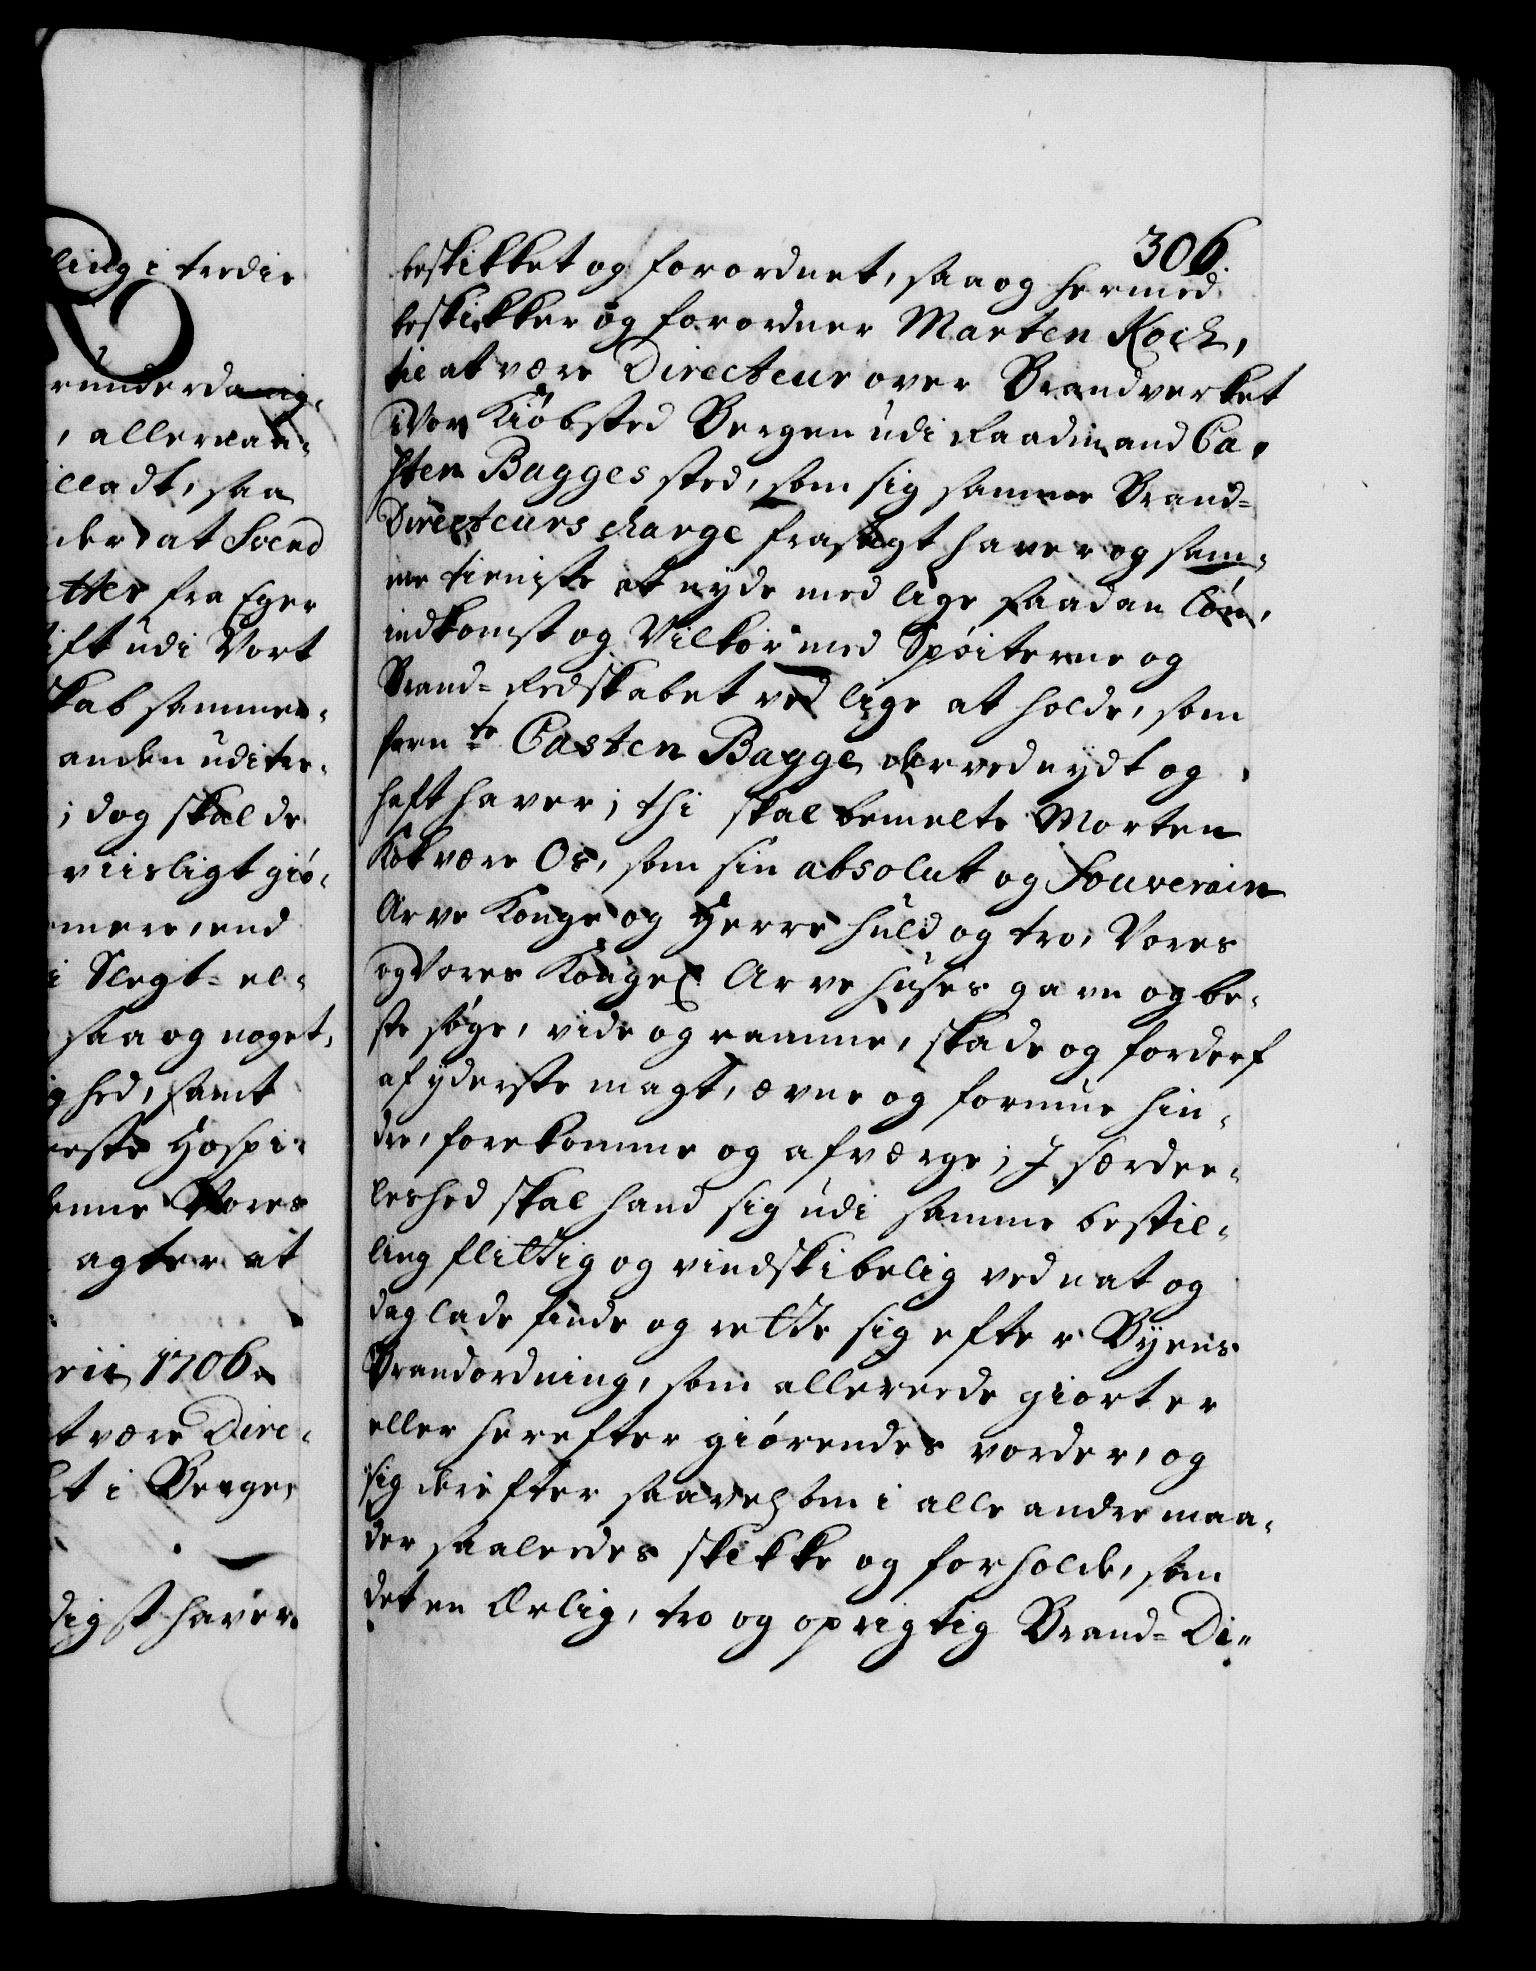 ling i tredie
runderdanig-
, allernaa-
illadt, saa
der at Svend
atter fra Eger
ift udi Vort
skab sammen-
anden udi tre-
; dog skal de
viisligt giø-
mere, end
i Slegt- el-
saa og noget,
ghed, samt
neste Hospi-
denne Vores
agter at
rii 1706.
t være Dire-
et i Bergen
digst haver
306.
beskikket og forordnet, saa og hermed
beskikker og forordner Marten Koch,
til at være Directeur over Brandverket
i Vor Kiøbsted Bergen udi Raadmand Ca-
sten Bagges sted, som sig samme Brand-
Directeurs charge frasagt haver og sam-
me tieniste at nyde med lige saadan løn,
indkomst og Vilkor med Spøiterne og
Brand-Redskabet ved lige at holde, som
forn.te Casten Bagge derved nydt og
haft haver; thi skal bemelte Morten
Kok være Os, som sin absolut og Souverain
Arve Konge og Herre huld og tro, Vores
og Vores Kongel. Arve Huses gavn og be-
ste søge, vide og ramme, skade og forderf
af yderste magt, ævne og formue hin-
dre, forekomme og afværge; I særdee-
leshed skal hand sig udi samme bestil-
ling flittig og vindskibelig ved nat og
dag lade finde og rette sig efter Byens
Brandordning, som allereede giort er
eller herefter giørendes vorder, og
sig derefter saavelsom i alle andre maa-
der saaledes skikke og forholde, som
det en Ærlig, tro og oprigtig Brand-Di-